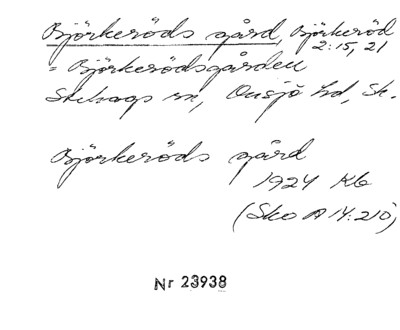 Björkeröds gård, Björkeröd
2:15, 21
= Björkerödsgården
Skehags sn, Onsjö hd, Sk.
Björkeröds gård
1924 Kb
(Sko A 14:210)
Nr 23938